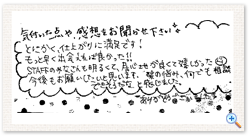 気付いた点や、感想をお聞かせ下さい♪
とにかく、仕上がりに満足です！
もっと早く出会えれば良かった!!
STAFFのみなさんも明るくて、居心地が良くて嬉しかった
今後もお願いしたいと思います。髪の悩み、何でも相談
できそうだな、と感じました。
ありがとう